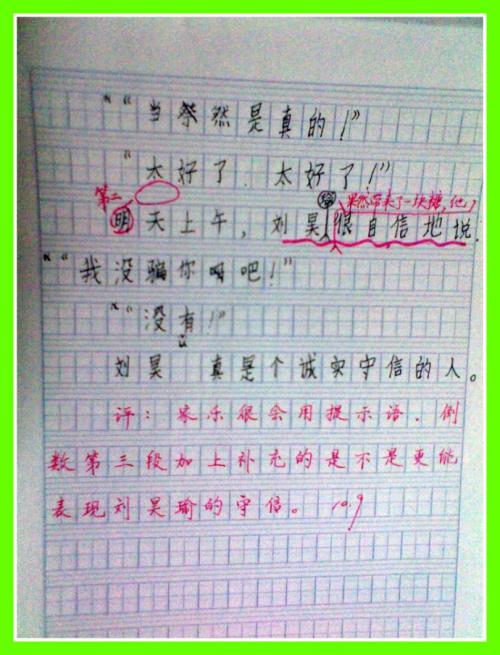 “当然是真的!”
“太好了，太好了!”
第二
瑜
果然带来了一块糖,他
明天上午,刘昊很自信地说:
“我没骗你吧!”
“没有!”
刘昊 真是个诚实守信的人。
评:家乐很会用提示语,倒
数第三段加上补充的是不是更能
表现刘昊瑜的守信。 10.9